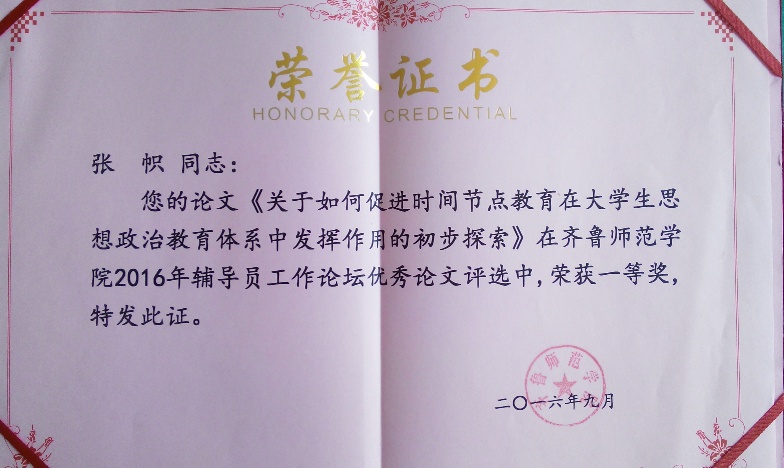 荣誉证书
HONORARY CREDENTIAL
张 帜 同志：
您的论文《关于如何促进时间节点教育在大学生思
想政治教育体系中发挥作用的初步探索》在齐鲁师范学
院2016年辅导员工作论坛优秀论文评选中，荣获一等奖，
特发此证。
齐鲁师范学院
二〇一六年九月